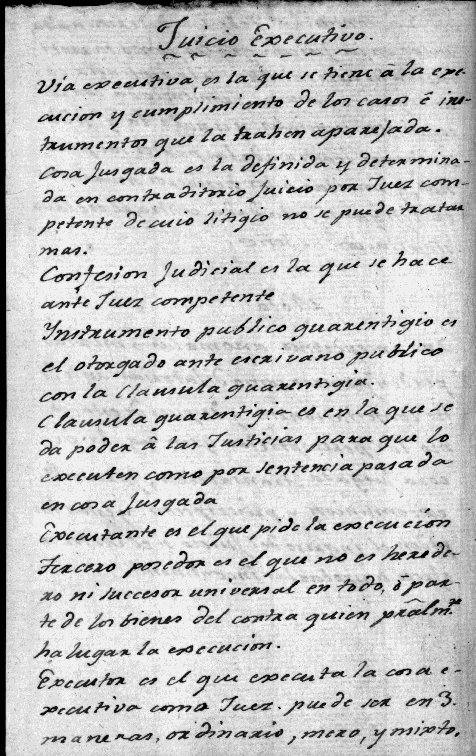 Juicio Executivo.
Via executiva, es la que se tiene â la exe-
cucion y cumplimiento de los casos ê ins-
trumentos que la trahen aparejada.
Cosa Jusgada es la definida y determina-
da en contraditorio Juicio por Juez com-
petente de cuio litigio no se puede tratar
mas.
Confesion Judicial es la que se hace
ante Juez competente
Ynstrumento publico guarentigio es
el otorgado ante escrivano publico
con la Clausula guarentigia.
Clausula guarentigia es en la que se
da poder â las Justicias para que lo
executen como por sentencia pasada
en cosa Jusgada
Executante es el que pide la execución
Tercero posedor es el que no es herede-
ro ni succesor universal en todo, ô par-
te de los bienes del contra quien pralm.te
ha lugar la execución.
Executor es el que executa la cosa e-
xecutiva como Juez. puede ser en 3.
maneras, ordinario, mero, y mixto.